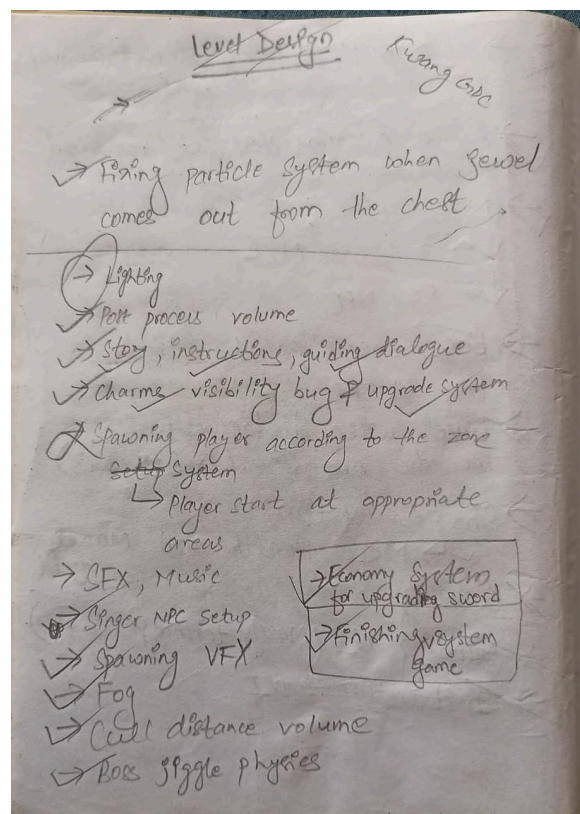 Level Design
Kwang GDC
→ Fixing particle system when jewel
comes out from the chest
→ Lighting
→ Post process volume
→ Story, instructions, guiding dialogue
→ Charms visibility bug & upgrade system
→ Spawning player according to the zone
Setup System
↳ Player start at appropriate
areas
→ SFX, Music
→ Singer NPC Setup
→ Spawning VFX
→ Fog
→ Cull distance volume
→ Boss jiggle physics
→ Economy System
for upgrading sword
→ Finishing system
game